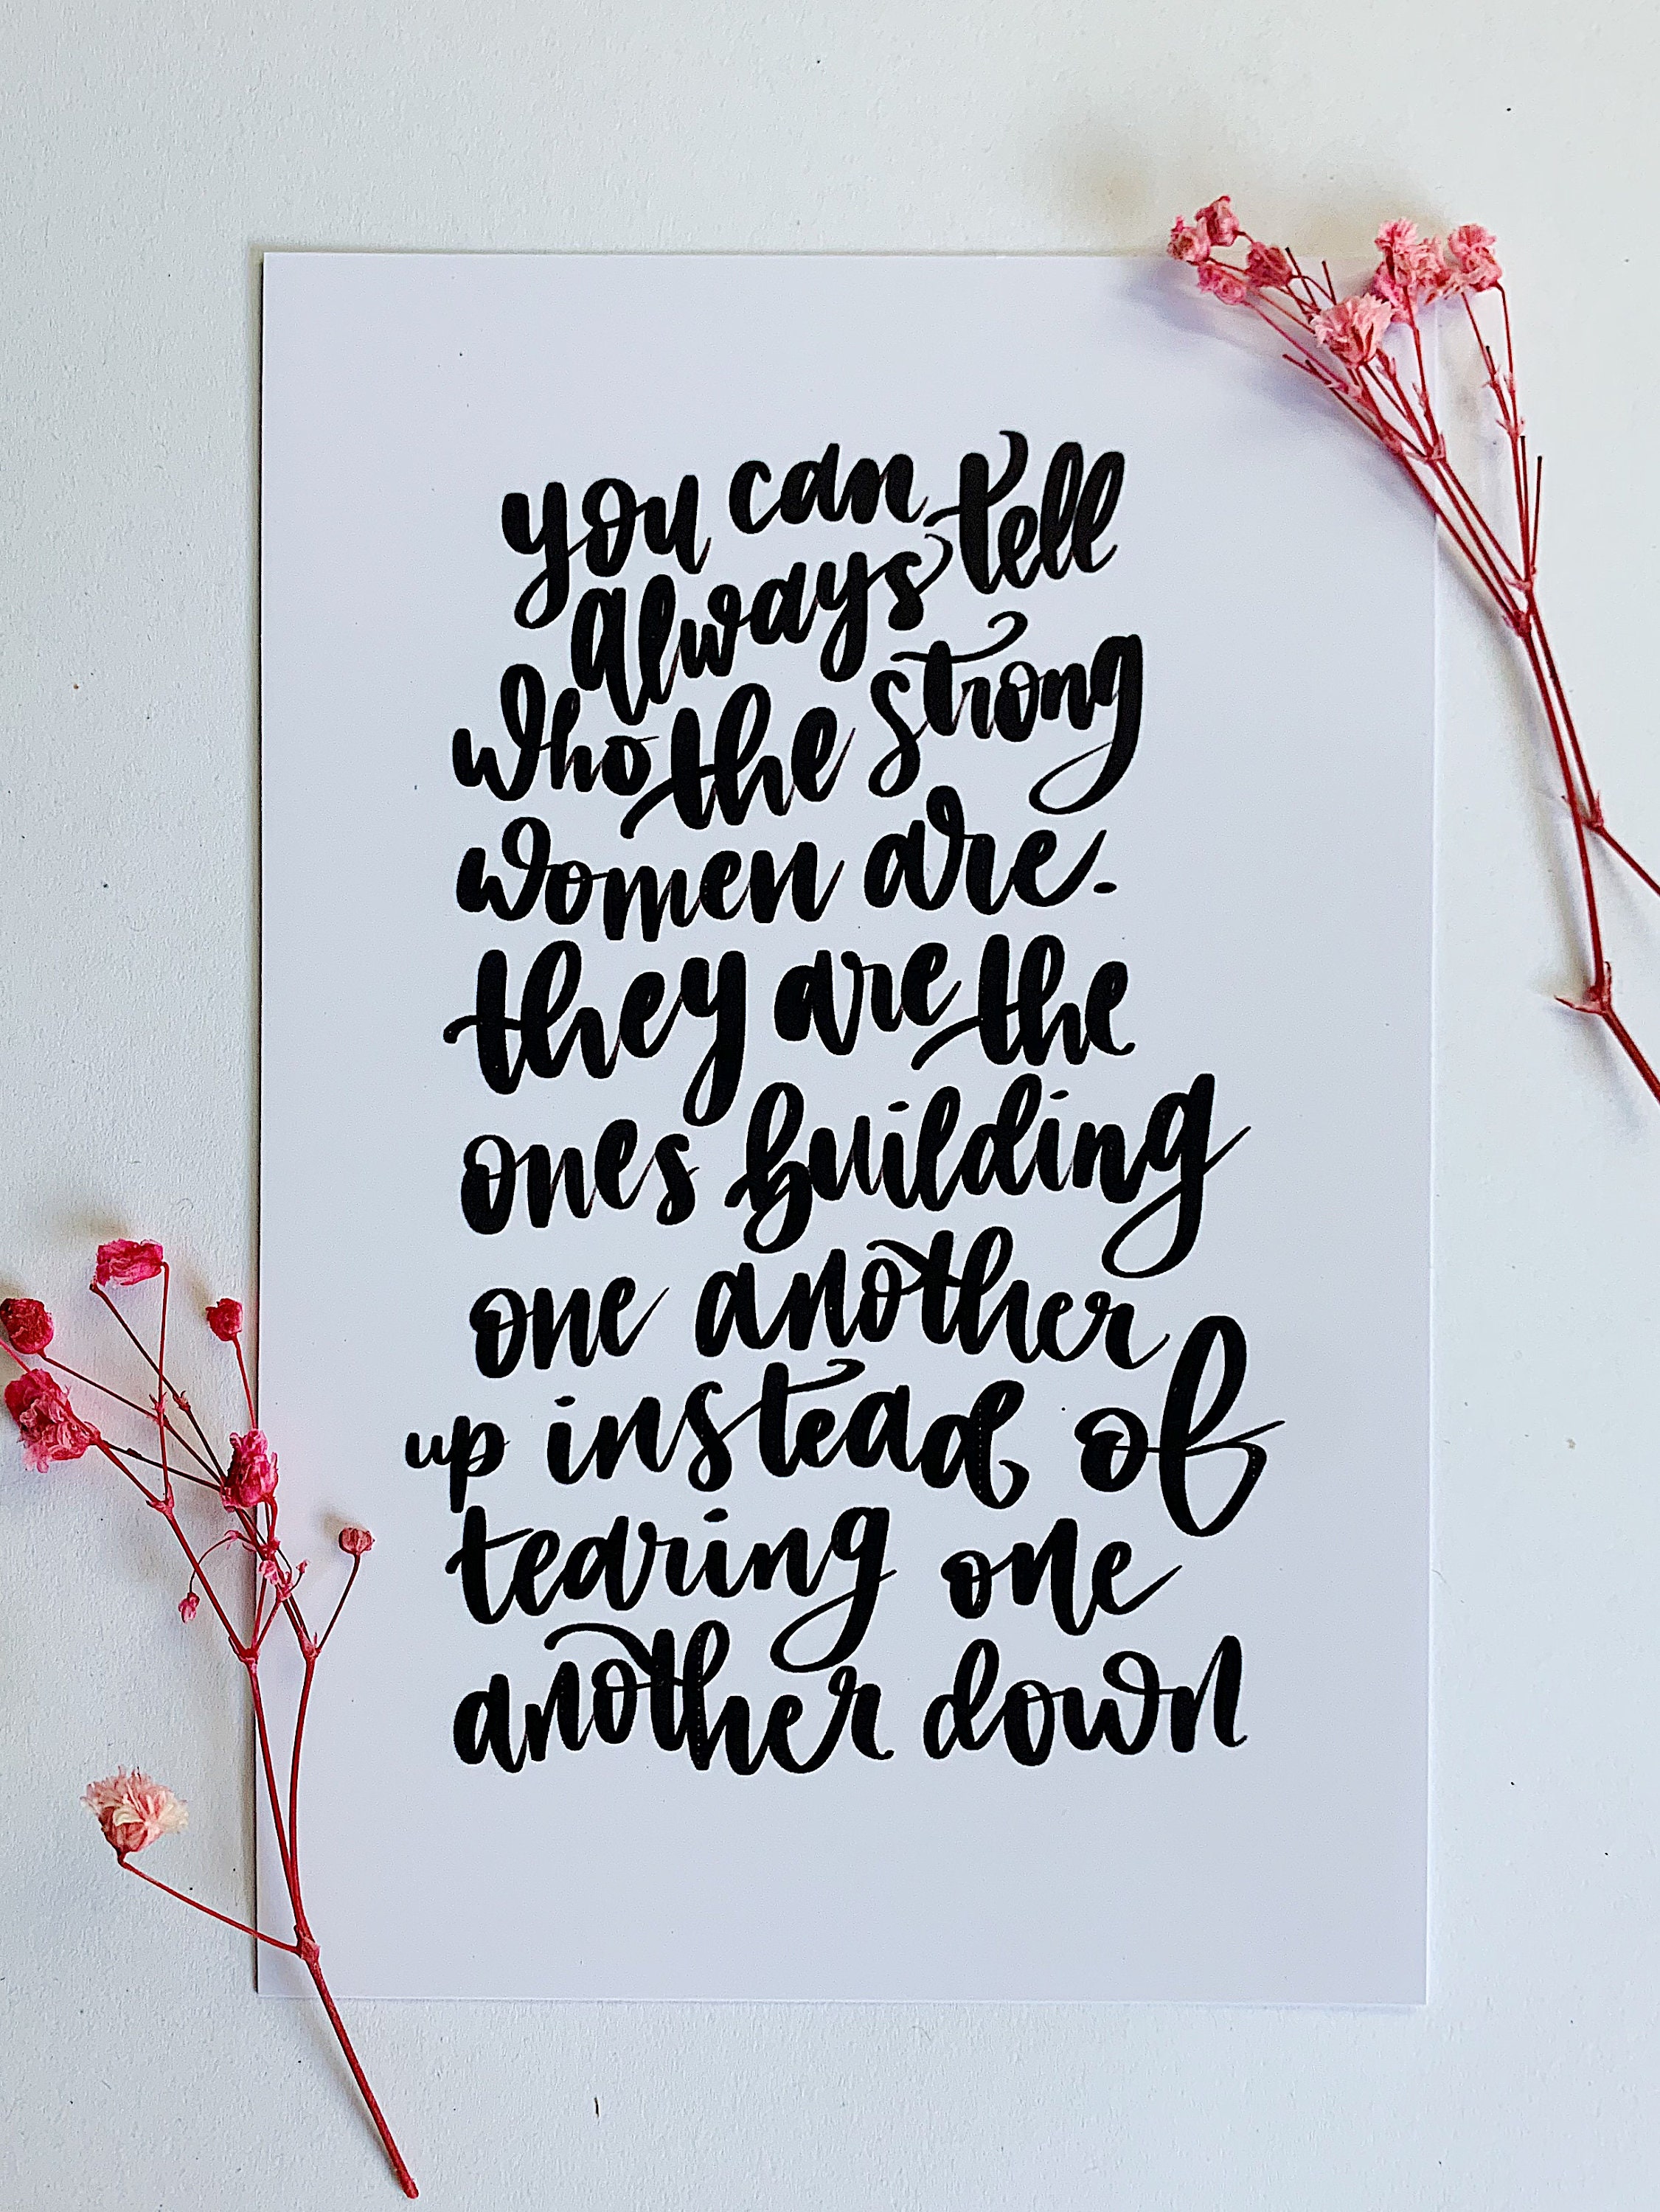 you can tell
always
who the strong
women are.
they are the
ones building
one another
up instead of
tearing one
another down